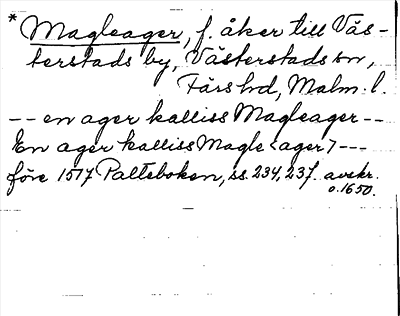 * Magleager, f. åker till Väs-
terstads by, Västerstads sn,
Färs hd, Malm. l.
-- en ager kalliss Magleager --
En ager kalliss Magle<ager> ---
före 1517 Palteboken, ss. 234, 237. avskr.
o. 1650.